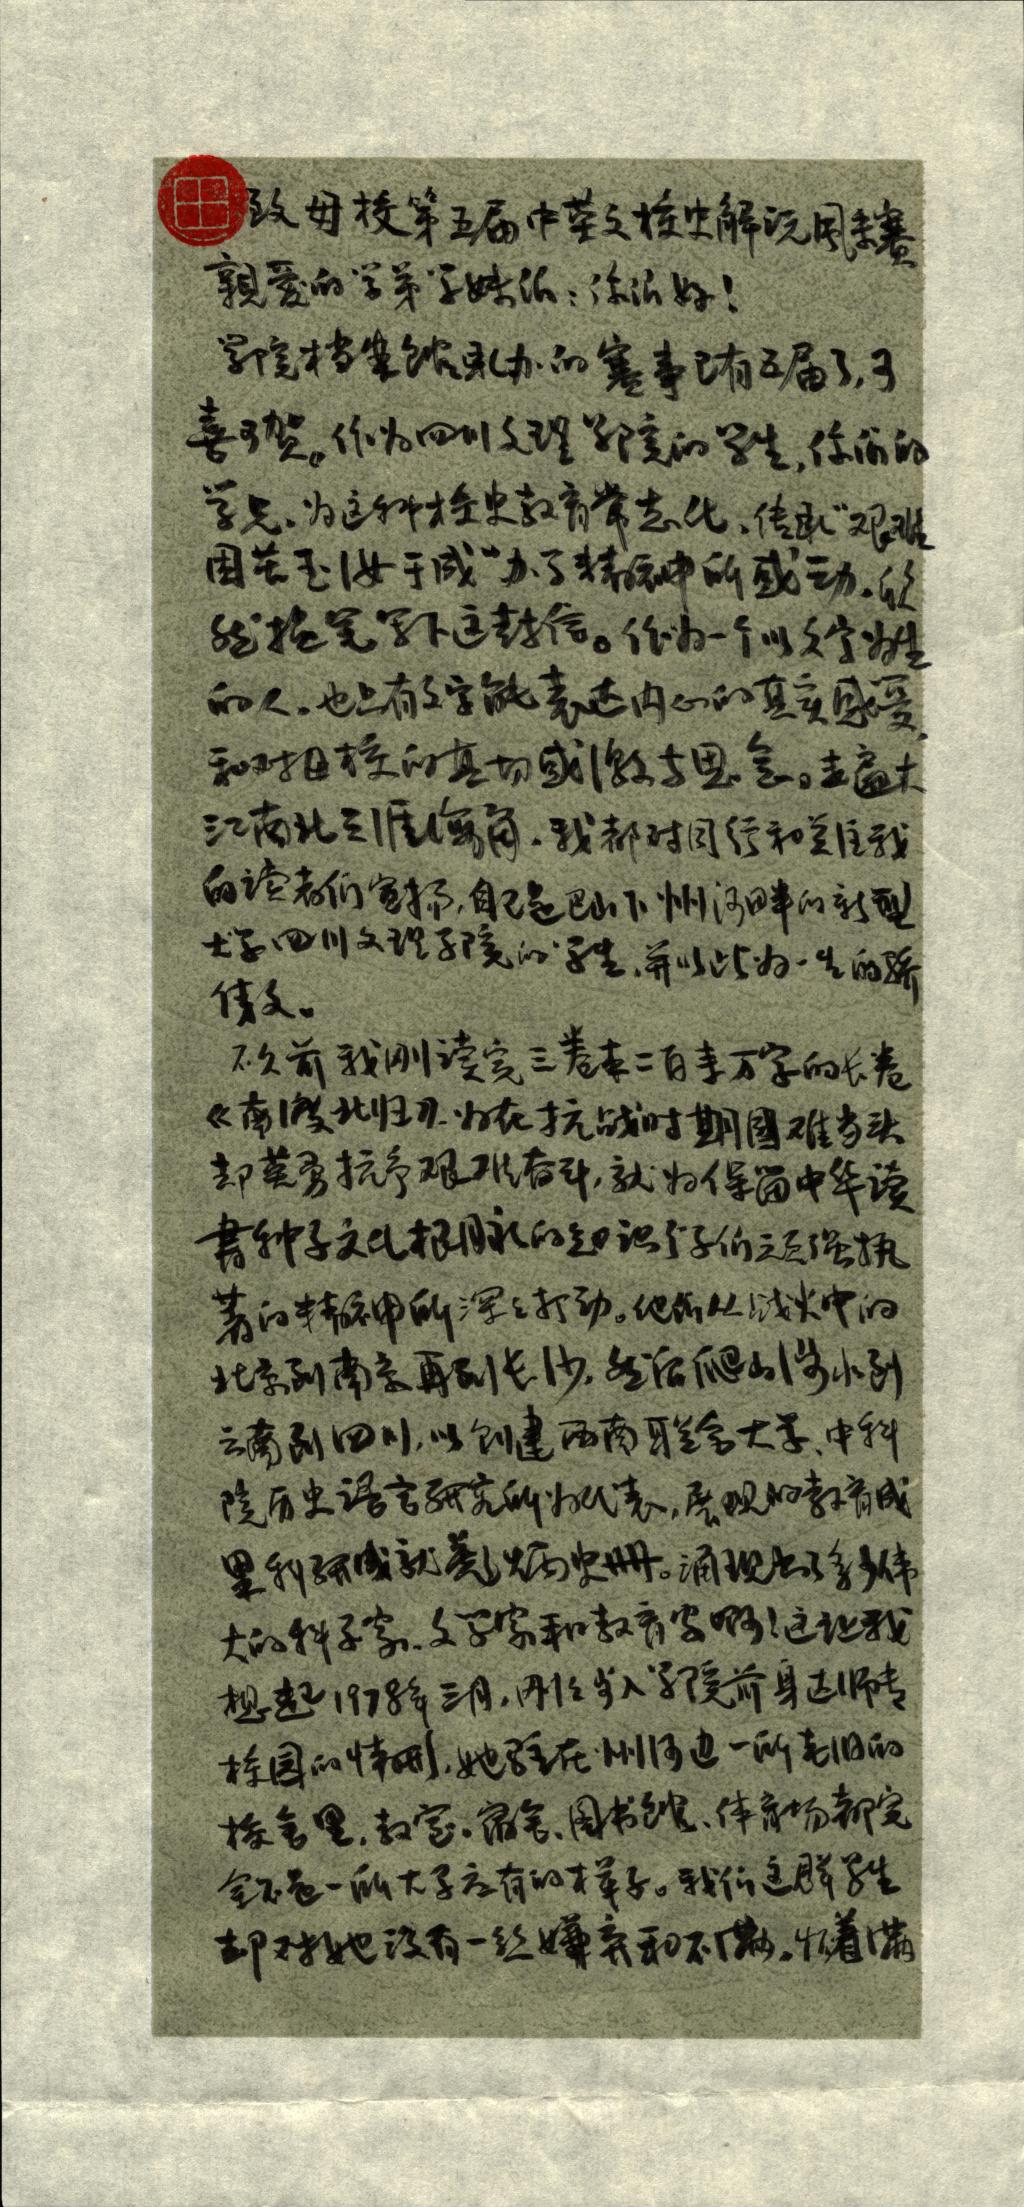 致母校第五届中英文校史解说风采赛
亲爱的学弟学妹们：你们好！
学院档案馆承办的赛事已有五届了，可
喜可贺。作为四川文理学院的学生，你们的
学兄，为这种校史教育常态化、传承“艰难
困苦玉汝于成”办学精神所感动，欣
然抬笔写下这封信。作为一个以文字为生
的人，也只有文字能表达内心的真实感受，
和对母校的真切感激与思念。走遍大
江南北天涯海角，我都对同行和关注我
的读者们宣扬，自己是巴山下州河畔的新型
大学四川文理学院的学生，并以此为一生的骄
傲。
不久前我刚读完三卷本二百多万字的长卷
《南渡北归》，为在抗战时期国难当头
却英勇抗争艰难奋斗，就为保留中华读
书种子文化根脉的知识分子们顽强执
著的精神所深深打动。他们从战火中的
北京到南京再到长沙，然后爬山涉水到
云南到四川，以创建西南联合大学、中科
院历史语言研究所为代表，展现的教育成
果科研成就彪炳史册。涌现出了多少伟
大的科学家、文学家和教育家啊！这让我
想起1978年三月，刚刚步入学院前身达师专
校园的情形，她坐在州河边一所老旧的
校舍里，教室、宿舍、图书馆、体育场都完
全不是一所大学应有的样子。我们这群学生
却对她没有一丝嫌弃和不满。怀着满